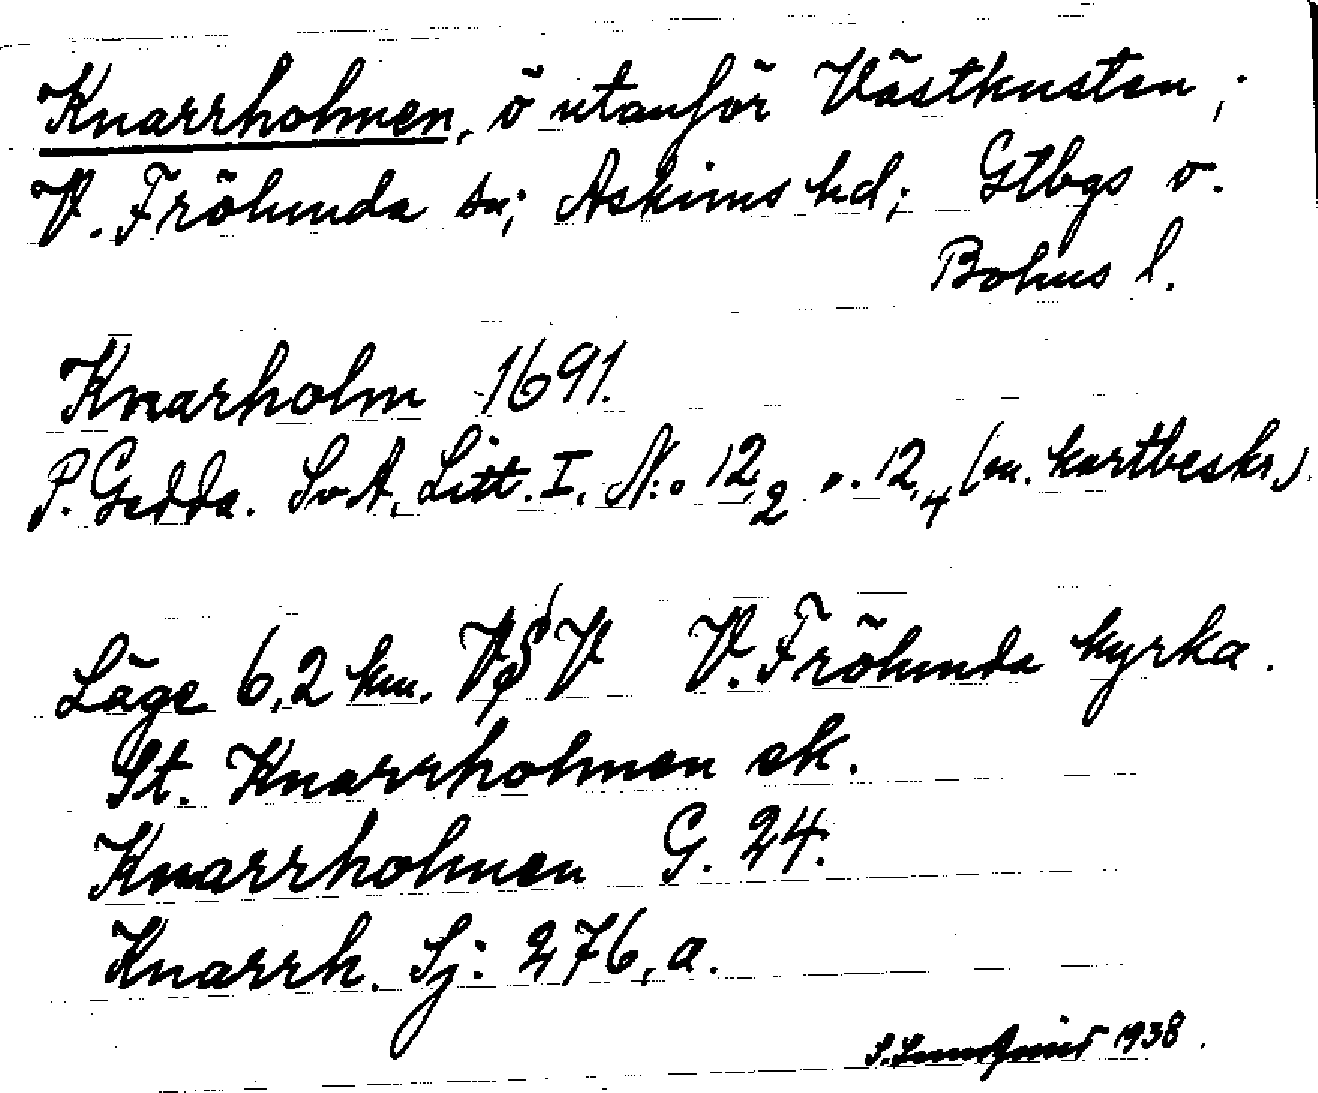 Knarrholmen, ö utanför Västkusten,
V. Frölunda sn; Askims hd; Gtbgs o.
Bohus l.
Knarholm 1691.
P. Gedda. SvA, Litt. I. N:o 12,2 o. 12,4 (m. kartbeskr.)
Läge 6,2 km. V V V. Frölunda kyrka.
St. Knarrholmen ek.
Knarrholmen G. 24.
Knarrh. Sj: 276, a.
1938.